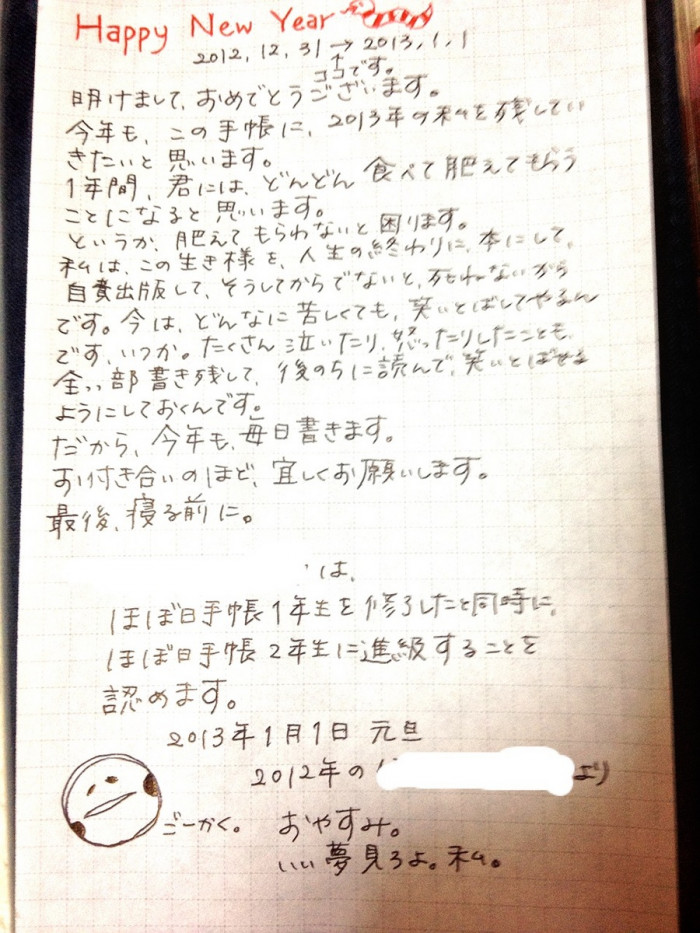 Happy New Year
2012.12.31→2013.1.1
↑
ココです。
明けまして、おめでとうございます。
今年も、この手帳に、2013年の私を残してい
きたいと思います。
1年間、君には、どんどん食べて肥えてもらう
ことになると思います。
というか、肥えてもらわないと困ります。
私は、この生き様を、人生の終わりに、本にして、
自費出版して、そうしてからでないと、死ねないから
です。今は、どんなに苦しくても、笑いとばしてやるん
です、いつか。たくさん泣いたり、怒ったりしたことも、
全っ部書き残して、後のちに読んで、笑いとばせる
ようにしておくんです。
だから、今年も、毎日書きます。
お付き合いのほど、宜しくお願いします。
最後、寝る前に。
は、
ほぼ日手帳1年生を修了したと同時に、
ほぼ日手帳2年生に進級することを
認めます。
2013年1月1日 元旦
2012年の より
ごーかく。 おやすみ。
いい夢見ろよ。私。